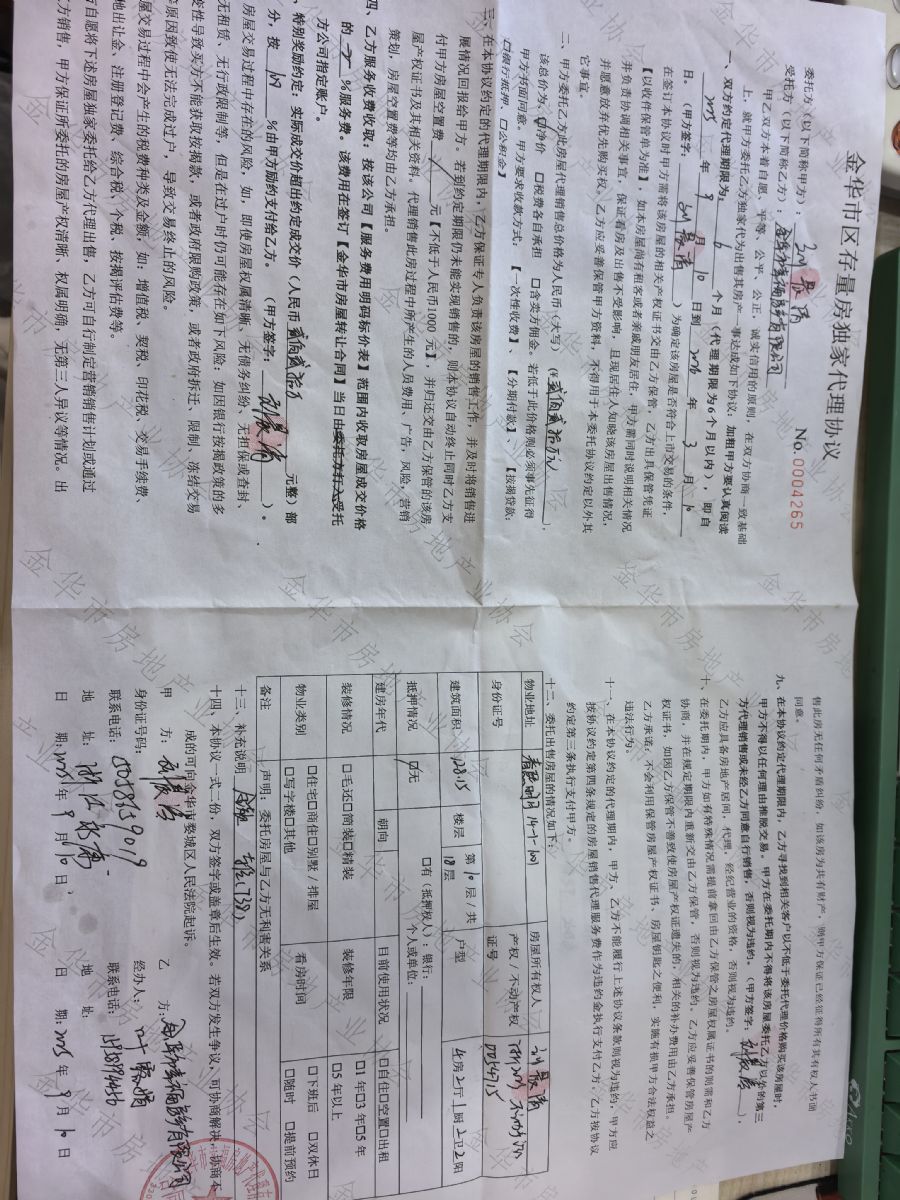 金华市区存量房独家代理协议
No. 0004265
委托方（以下简称甲方）：
受托方（以下简称乙方）：
甲乙双方本着自愿、平等、公平、公正、诚实信用的原则，在双方协商一致基础
上，就甲方委托乙方独家代为出售其房产一事达成如下协议，加粗甲方要认真阅读
一、双方约定代理期限为： 6 个月（代理期限为6个月以内），即自
2025 年 9 月 10 日到 2026 年 3 月 10
日。（甲方签字： ）
在签订本协议时甲方需将该房屋的相关产权证书交由乙方保管，乙方出具保管凭证
【以收件保管单为准】，如本房屋尚有租客或者亲戚朋友居住，甲方需同时说明相关情况
并负责协调相关事宜，保证看房及出售不受影响，且现居住人知晓该房屋出售情况，
并愿意放弃优先购买权，乙方应妥善保管甲方资料，不得用于本委托协议约定以外其
它事宜。
二、甲方委托乙方此房屋代理销售总价格为人民币（大写）（¥ 贰佰贰拾万元 ），
该总价为：☑净价 □税费各自承担 □含卖方佣金。若低于此价格则必须事先征得
甲方书面同意。甲方要求收款方式：【一次性收费】、【分期付款】、【按揭贷款：
□银行抵押、□公积金】
三、在本协议约定的代理期限内，乙方保证专人负责该房屋的销售工作，并及时将销售进
展情况回报给甲方。若到约定期限仍未能实现销售的，则本协议自动终止同时乙方支
付甲方房屋空置费 / 元【不低于人民币1000元】，并归还交由乙方保管的该房
屋产权证书及其相关资料，代理销售此房过程中所产生的人员费用、广告、风险、营销
策划，房屋空置费等均由乙方承担。
四、乙方服务收费收取：按该公司【服务费用明码标价表】范围内收取房屋成交价格
的 %服务费。该费用在签订【金华市房屋转让合同】当日由委托方打入受托
方公司指定账户。
特别奖励约定：实际成交价超出约定成交价（人民币 贰佰贰拾万 元整）部
分，按 %由甲方励约支付给乙方。（甲方签字： ）。
房屋交易过程中存在的风险，如，即使房屋权属清晰、无债务纠纷、无担保或查封、
无租赁、无行政限制等，但是在过户时仍可能存在如下风险：如因银行按揭政策的多
变性导致买方不能获取按揭款，或者政府限购政策，或者政府拆迁、限制、冻结交易
等原因致使无法完成过户，导致交易终止的风险。
屋交易过程中会产生的税费种类及金额，如：增值税、契税、印花税、交易手续费、
地出让金、注册登记费、综合税、个税、按揭评估费等。
方自愿将下述房屋独家委托给乙方代理出售，乙方可自行制定营销销售计划或通过
方销售，甲方保证所委托的房屋产权清晰，权属明确，无第三人异议等情况。出
售此房无任何矛盾纠纷，如该房为共有财产，则甲方保证已经征得所有共有权人书面
同意。
九、在本协议约定代理期限内，乙方寻找到相关客户以不低于委托代理价格购买该房屋时，
甲方不得以任何理由推脱交易。甲方在委托期内不得将该房屋委托乙方以外的第三
方代理销售或未经乙方同意自行销售，否则视为违约。（甲方签字： ），
乙方应具备房地产居间、代理、经纪营业的资格，否则视为违约。
十、在委托期内，甲方如有特殊情况需提前拿回由乙方保管之房屋权属证书的则需和乙方
协商，并在规定期限内重新交由乙方保管，否则视为违约。乙方应妥善保管房屋产
权证书，如因乙方保管不善致使房屋产权证遗失的，相关的补办费用由乙方承担。
乙方承诺：不会利用保管房屋产权证书、房屋钥匙之便利，实施有损甲方合法权益之
违法行为。
十一、在本协议约定的代理期内，甲方、乙方不能履行上述协议条款则视为违约，甲方应
按协议约定第四条规定的房屋销售代理服务费作为违约金执行支付乙方；乙方按协议
约定第三条执行支付甲方。
十二、委托出售房屋的情况如下：
物业地址 14-1-1001 房屋所有权人
身份证号 产权/不动产权证号
建筑面积 128.15 楼层 第 10 层/共 18 层 户型 4房2厅1厨2卫2阳
抵押情况 ☑无 □有（抵押权人）：银行： 个人或单位：
建房年代 朝向 目前使用状况 □自住□空置□出租
装修情况 □毛坯□简装□精装 装修年限 □1年□3年□5年 □5年以上
物业类别 □住宅□商住□别墅/排屋 □写字楼□其他 看房时间 □下班后 □双休日 □随时 □提前预约
备注 声明：委托房屋与乙方无利害关系
十三、补充说明
十四、本协议一式二份，双方签字或盖章后生效。若双方发生争议，可协商解决，协商不
成的可向金华市婺城区人民法院起诉。
甲 方： 乙 方：
身份证号码： 经办人：
联系电话： 联系电话：
地 址： 地 址：
日 期：2025年9月10日 日 期：2025年9月10日